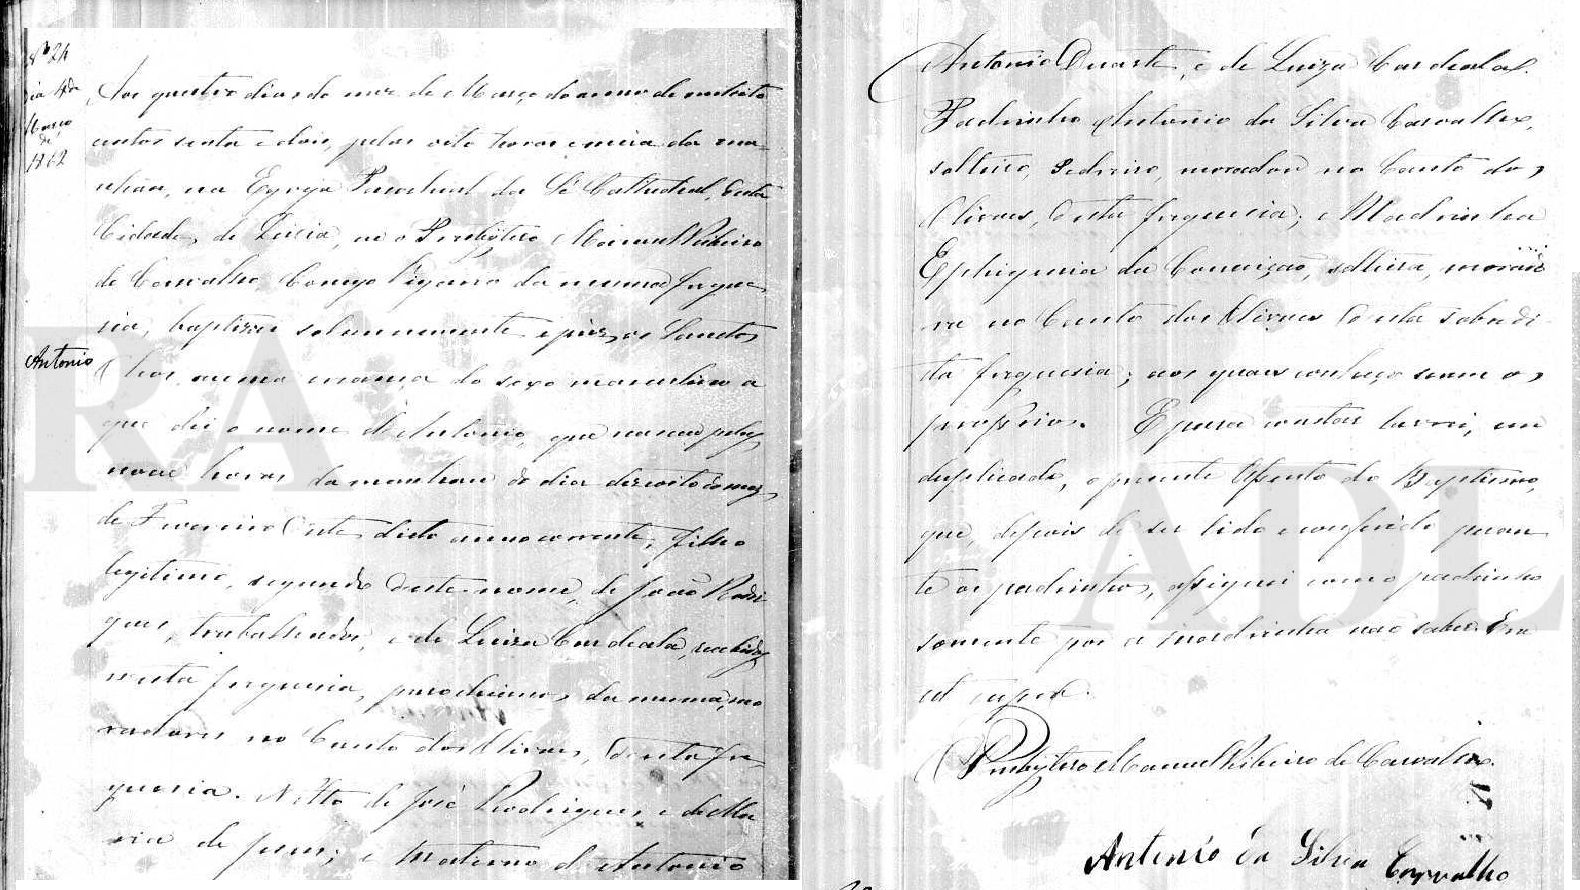 Nº 24
Dia 4 de
Março
de
1862
Aos quatro dias do mez de Março do anno de mil oito
centos senta e dois, pelas oito horas e meia da ma-
nhãa, na Egreja Parochial da Sé Cathedral, desta
Cidade, de Leiria, eu o Presbytero Manoel Ribeiro
de Carvalho, Conego Vigario da mesma fregue
sia, baptizei solemnemente e puz os Sanctos
Antonio
Oleos, a uma creança do sexo masculino a
que dei o nome de Antonio, que nasceu pelas
nove horas da manhan do dia dezoito do mez
de Fevereiro deste dicto anno corrente, filho
legitimo, segundo deste nome, de João Rodri
gues, trabalhador, e de Luiza Cardeala, recebidos
nesta freguesia, parochianos da mesma, mo
radores no Canto dos Olivaes, desta fre
guesia. Netto de José Rodrigues, e de Ma
ria de Jesus; e Materno de Antonio
Antonio Duarte, e de Luiza Cardeala.
Padrinho Antonio da Silva Carvalho,
solteiro, Pedreiro, morador no Canto dos
Olivaes, desta freguesia; e Madrinha
Ephigenia da Conceição, solteira, morado
ra no Canto dos Olivaes desta sobredi
ta freguesia; aos quaes conheço serem os
proprios. E para constar lavrei, em
duplicado, o presente Assento de Baptismo,
que, depois de ser lido e conferido peran
te os padrinhos, assignei com o padrinho
somente por a madrinha não saber. Era
ut supra.
O Presbytero Manuel Ribeiro de Carvalho.
Antonio da Silva Carvalho
RA ADL